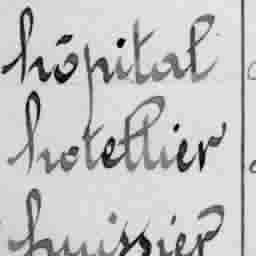 hôpital
hotellier
huissier